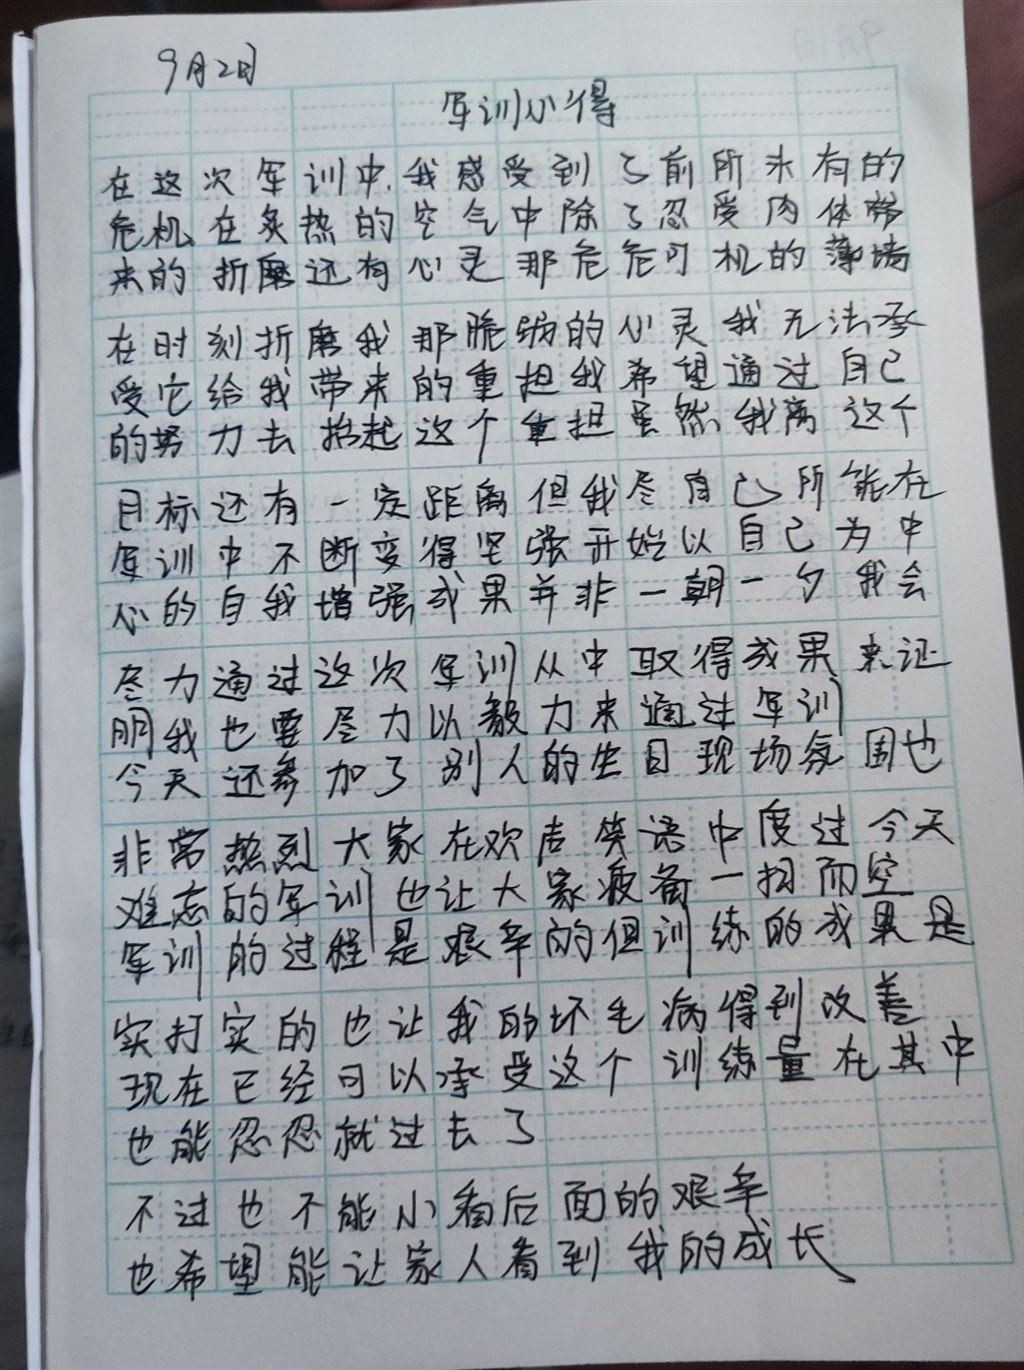 9月2日
军训心得
在这次军训中,我感受到了前所未有的
危机,在炙热的空气中除了忍受肉体带
来的折磨还有心灵那危危可机的薄墙
在时刻折磨我那脆弱的心灵我无法承
受它给我带来的重担我希望通过自己
的努力去抬起这个重担虽然我离这个
目标还有一定距离但我尽自己所能在
军训中不断变得坚强开始以自己为中
心的自我增强成果并非一朝一夕我会
尽力通过这次军训从中取得成果来证
明我也要尽力以毅力来通过军训
今天还参加了别人的生日现场氛围也
非常热烈大家在欢声笑语中度过今天
难忘的军训也让大家疲备一扫而空
军训的过程是艰辛的但训练的成果是
实打实的也让我的坏毛病得到改善
现在已经可以承受这个训练量在其中
也能忍忍就过去了
不过也不能小看后面的艰辛
也希望能让家人看到我的成长